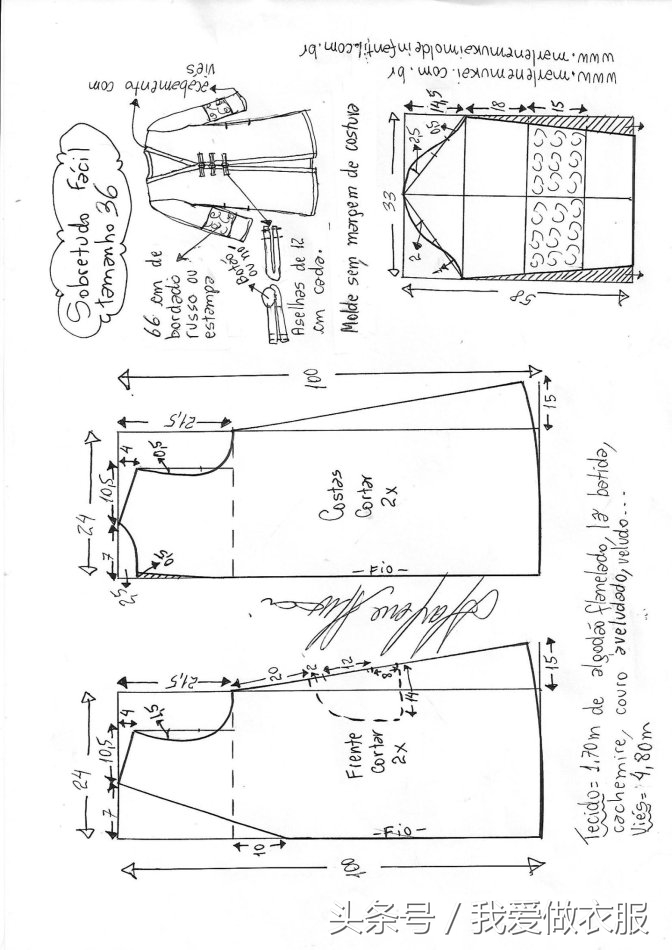 Sobretudo Fácil
tamanho 36
acabamento com
viés
66 cm de
bordado
russo ou
estampa
Botão
ou nó
Aselhas de 12
cm cada.
Molde sem margem de costura
www.marlenemukai.com.br
www.marlenemukaimoldeinfantil.com.br
14,5
18
15
33
2,5
0,5
2
1
58
100
21,5
15
24
4
10,5
0,5
7
2,5
0,5
Costas
Cortar
2x
-Fio-
Marlene Mukai
21,5
20
2
12
8
14
15
24
4
10,5
1,5
7
Frente
Cortar
2x
-Fio-
10
100
Tecido= 1,70m de algodão flanelado, lã batida,
cachemire, couro aveludado, veludo...
Viés= 4,80m
头条号 / 我爱做衣服